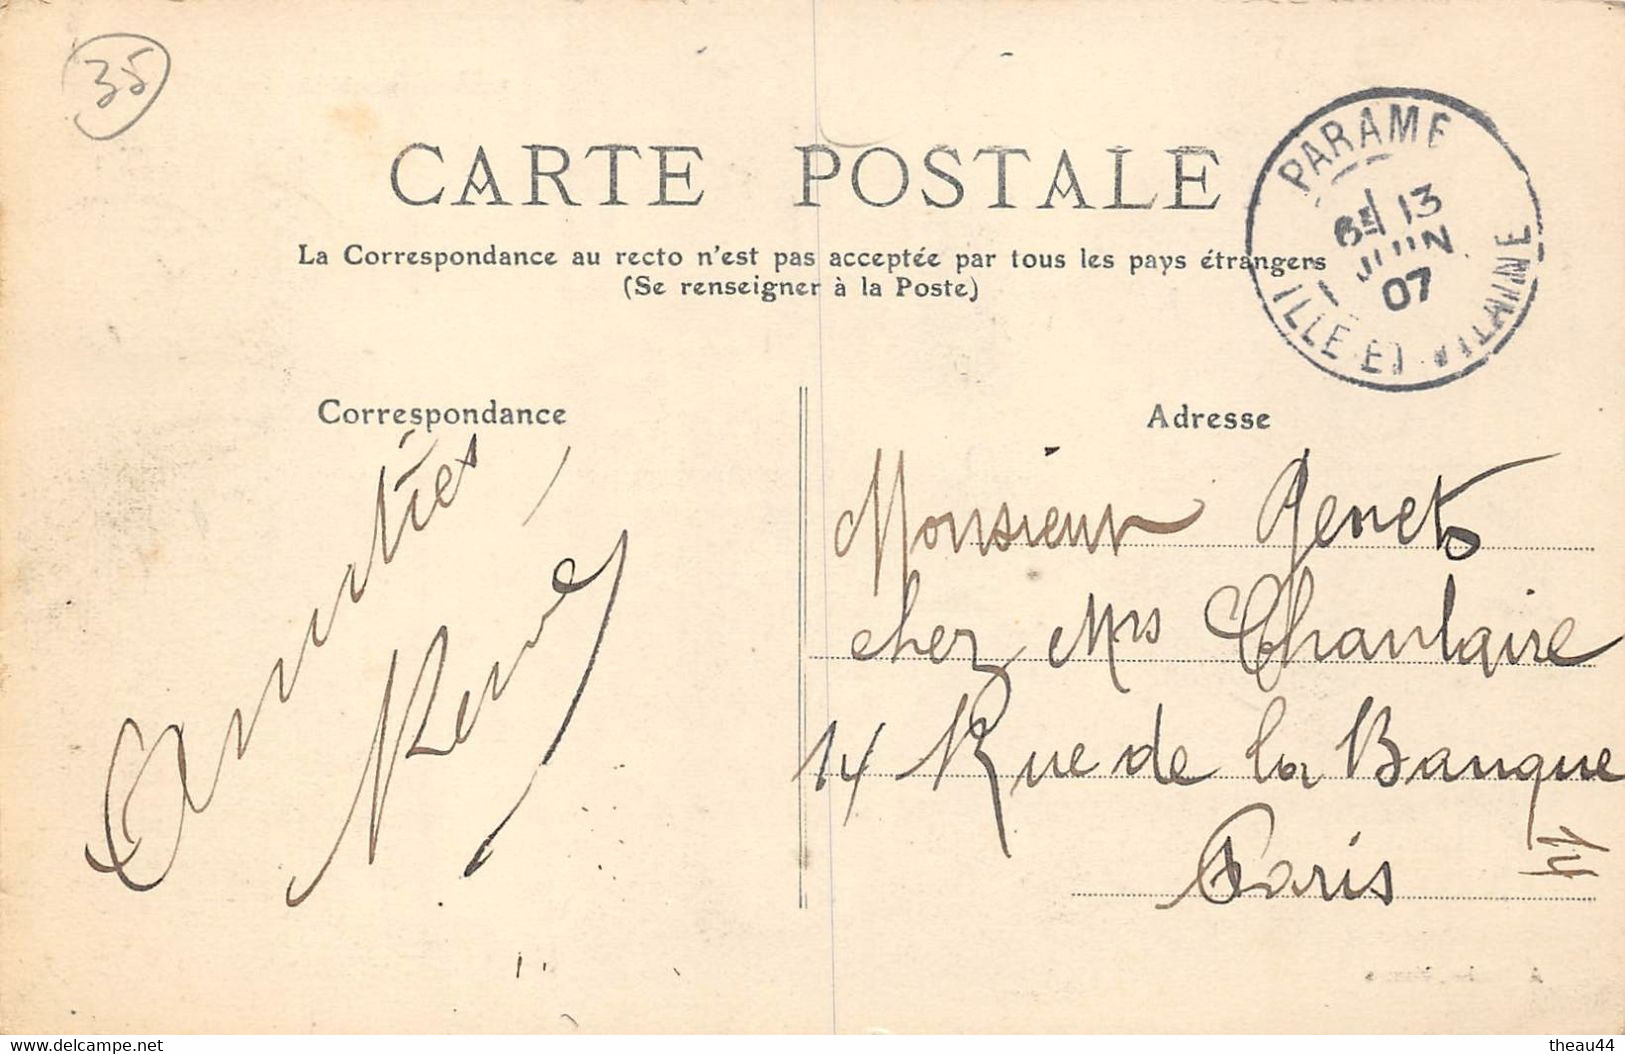 35
CARTE POSTALE
La Correspondance au recto n'est pas acceptée par tous les pays étrangers
(Se renseigner à la Poste)
PARAME
13
JUIN
07
ILLE ET VILAINE
Correspondance
Adresse
Amitiés
René
Monsieur Genet
chez Mrs Chanlaire
14 Rue de la Banque
Paris
www.delcampe.net
theau44